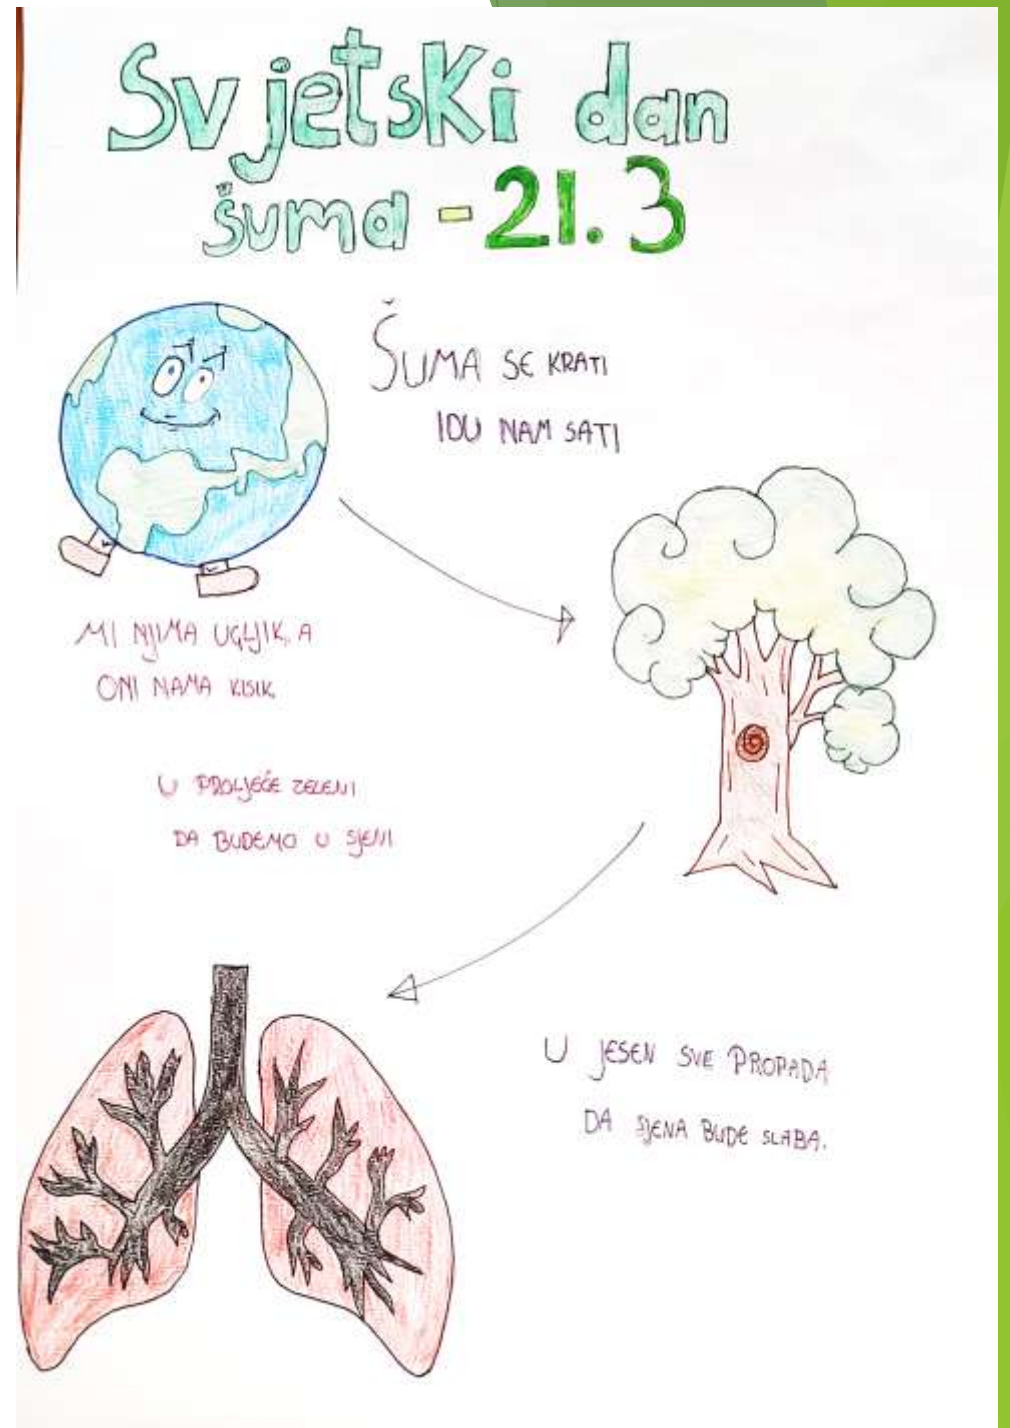 Svjetski dan
šuma - 21.3
ŠUMA SE KRATI
IDU NAM SATI
MI NJIMA UGLJIK, A
ONI NAMA KISIK.
U PROLJEĆE ZELENI
DA BUDEMO U SJENI
U JESEN SVE PROPADA
DA SJENA BUDE SLABA.